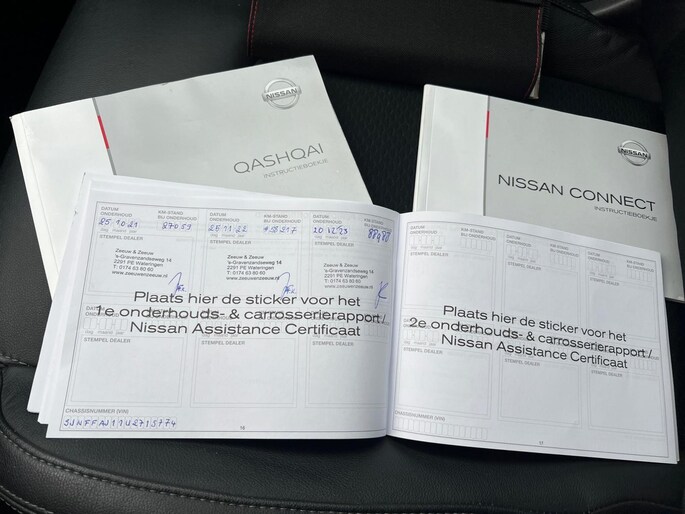 NISSAN
QASHQAI
INSTRUCTIEBOEKJE
NISSAN
NISSAN CONNECT
INSTRUCTIEBOEKJE
DATUM ONDERHOUD
KM-STAND BIJ ONDERHOUD
DATUM ONDERHOUD
KM-STAND BIJ ONDERHOUD
DATUM ONDERHOUD
KM-STAND BIJ ONDERHOUD
25 10 21
27059
25 11 22
20 12 23
dag maand jaar
dag maand jaar
dag maand jaar
STEMPEL DEALER
STEMPEL DEALER
STEMPEL DEALER
Zeeuw & Zeeuw
's-Gravenzandseweg 14
2291 PE Wateringen
T: 0174 63 80 60
www.zeeuwenzeeuw.nl
Zeeuw & Zeeuw
's-Gravenzandseweg 14
2291 PE Wateringen
T: 0174 63 80 60
www.zeeuwenzeeuw.nl
Zeeuw & Zeeuw
's-Gravenzandseweg 14
2291 PE Wateringen
T: 0174 63 80 60
www.zeeuwenzeeuw.nl
Plaats hier de sticker voor het
1e onderhouds- & carrosserierapport /
Nissan Assistance Certificaat
STEMPEL DEALER
STEMPEL DEALER
STEMPEL DEALER
CHASSISNUMMER (VIN)
SJNFFAJ11U2715774
16
DATUM ONDERHOUD
KM-STAND BIJ ONDERHOUD
DATUM ONDERHOUD
KM-STAND BIJ ONDERHOUD
DATUM ONDERHOUD
KM-STAND BIJ ONDERHOUD
STEMPEL DEALER
STEMPEL DEALER
STEMPEL DEALER
Plaats hier de sticker voor het
2e onderhouds- & carrosserierapport /
Nissan Assistance Certificaat
STEMPEL DEALER
STEMPEL DEALER
STEMPEL DEALER
CHASSISNUMMER (VIN)
17